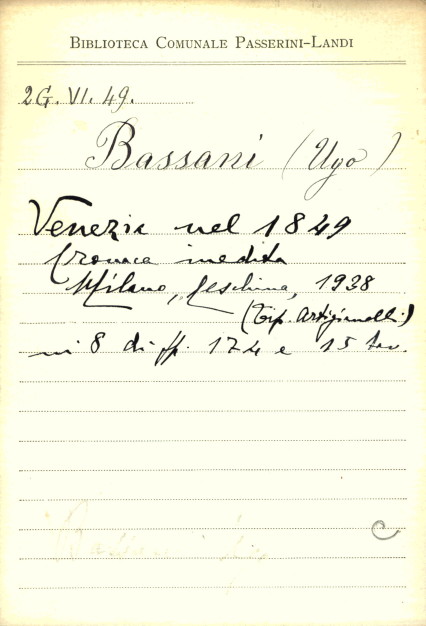 BIBLIOTECA COMUNALE PASSERINI-LANDI
2G. VI. 49.
Bassani (Ugo)
Venezia nel 1849
Cronaca inedita
Milano, Ceschina, 1938
(Tip. Artigianelli)
in 8 di pp. 174 e 15 tav.
C